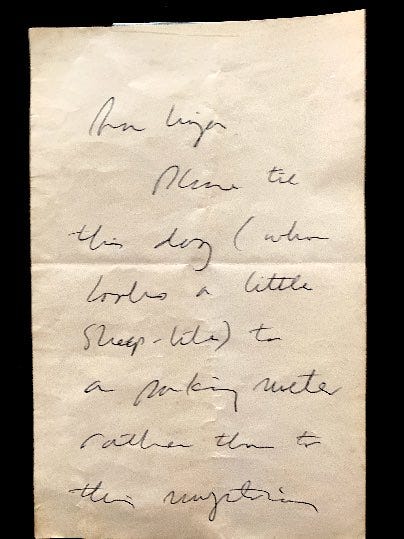 Dear
Please tie
this dog (who
looks a little
sheep-like) to
a parking meter
rather than to
this mysterious